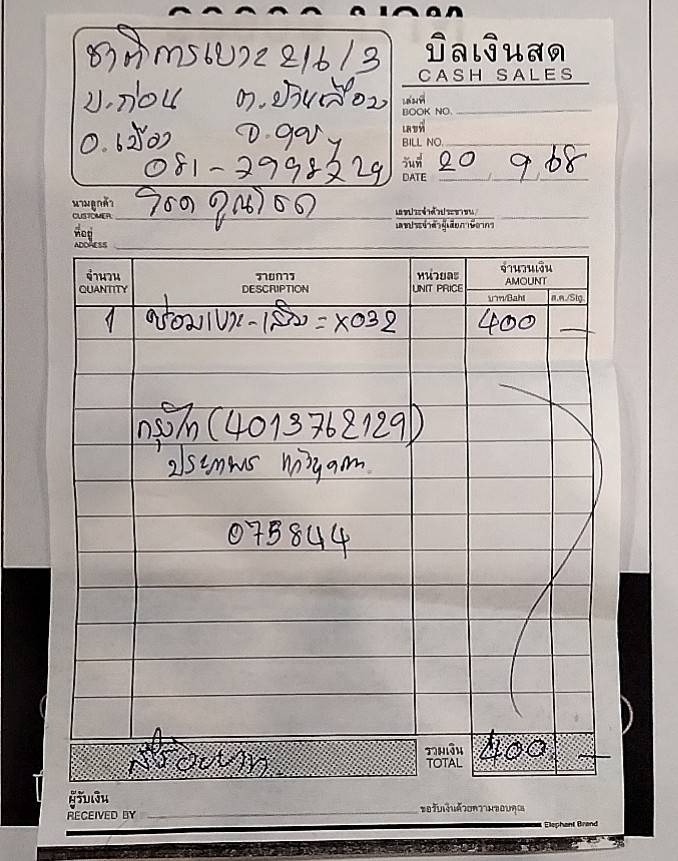 ชาติการเบาะ 216/3
บิลเงินสด
CASH SALES
บ.ก่อน ต.บ้านเลื่อม
เล่มที่
BOOK NO.
อ.เมือง จ.อุดร
เลขที่
BILL NO.
081-2998229
วันที่ 20 9 68
DATE
นามลูกค้า
CUSTOMER
เลขประจำตัวประชาชน/
เลขประจำตัวผู้เสียภาษีอากร
ที่อยู่
ADDRESS
จำนวน รายการ หน่วยละ จำนวนเงิน
QUANTITY DESCRIPTION UNIT PRICE AMOUNT
บาท/Baht ส.ต./Stg.
1 ซ่อมเบาะ-เสริม = X032 400 –
กรุงไทย (4013762129)
075844
สี่ร้อยบาท รวมเงิน 400 –
TOTAL
ผู้รับเงิน
RECEIVED BY
ขอรับเงินด้วยความขอบคุณ
Elephant Brand